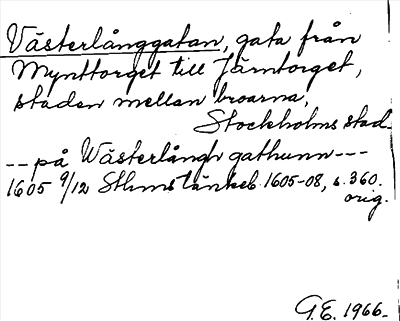 Västerlånggatan, gata från
Mynttorget till Järntorget,
staden mellan broarna,
Stockholms stad.
-- på Wästerlångh gathunn ---
1605 9/12 Sthms tänkeb. 1605-08, s. 360.
orig.
G.E. 1966.